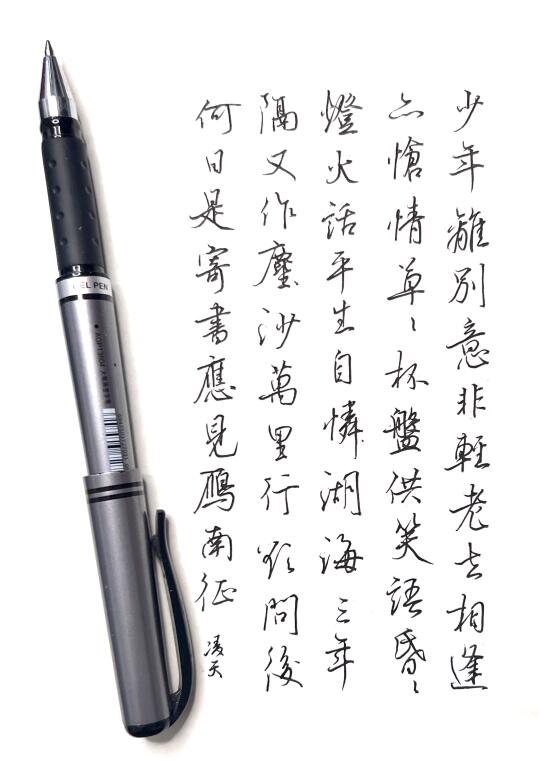 少年離別意非輕老去相逢
亦愴情草〻杯盤供笑語昏〻
燈火話平生自憐湖海三年
隔又作塵沙萬里行欲問後
何日是寄書應見鴈南征
凌天
GEL PEN